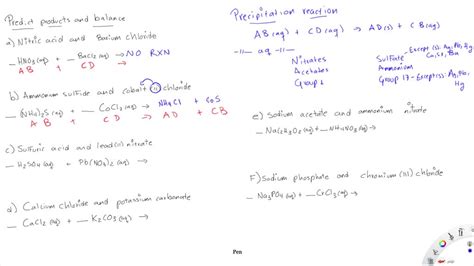 Predict products and balance
a) Nitric acid and Barium chloride
__HNO₃(aq) + __BaCl₂(aq) → NO RXN
AB + CD →
b) Ammonium sulfide and cobalt (II) chloride
__(NH₄)₂S(aq) + __CoCl₂(aq) → NH₄Cl + CoS
AB + CD → AD + CB
c) Sulfuric acid and lead(II) nitrate
__H₂SO₄(aq) + __Pb(NO₃)₂(aq) →
d) Calcium chloride and potassium carbonate
__CaCl₂(aq) + __K₂CO₃(aq) →
Precipitation reaction
AB(aq) + CD(aq) → AD(s) + CB
-11- aq -11-
Nitrates
Acetates
Group 1
Sulfate Except (s):
Ca, Sr, Ba
Ammonium
Group 17 - Except(s): Ag, Pb,
Hg
e) Sodium acetate and ammonium nitrate
__NaC₂H₃O₂(aq) + __NH₄NO₃(aq) →
F) Sodium phosphate and chromium (III) chloride
__Na₃PO₄(aq) + __CrCl₃(aq) →
Pen